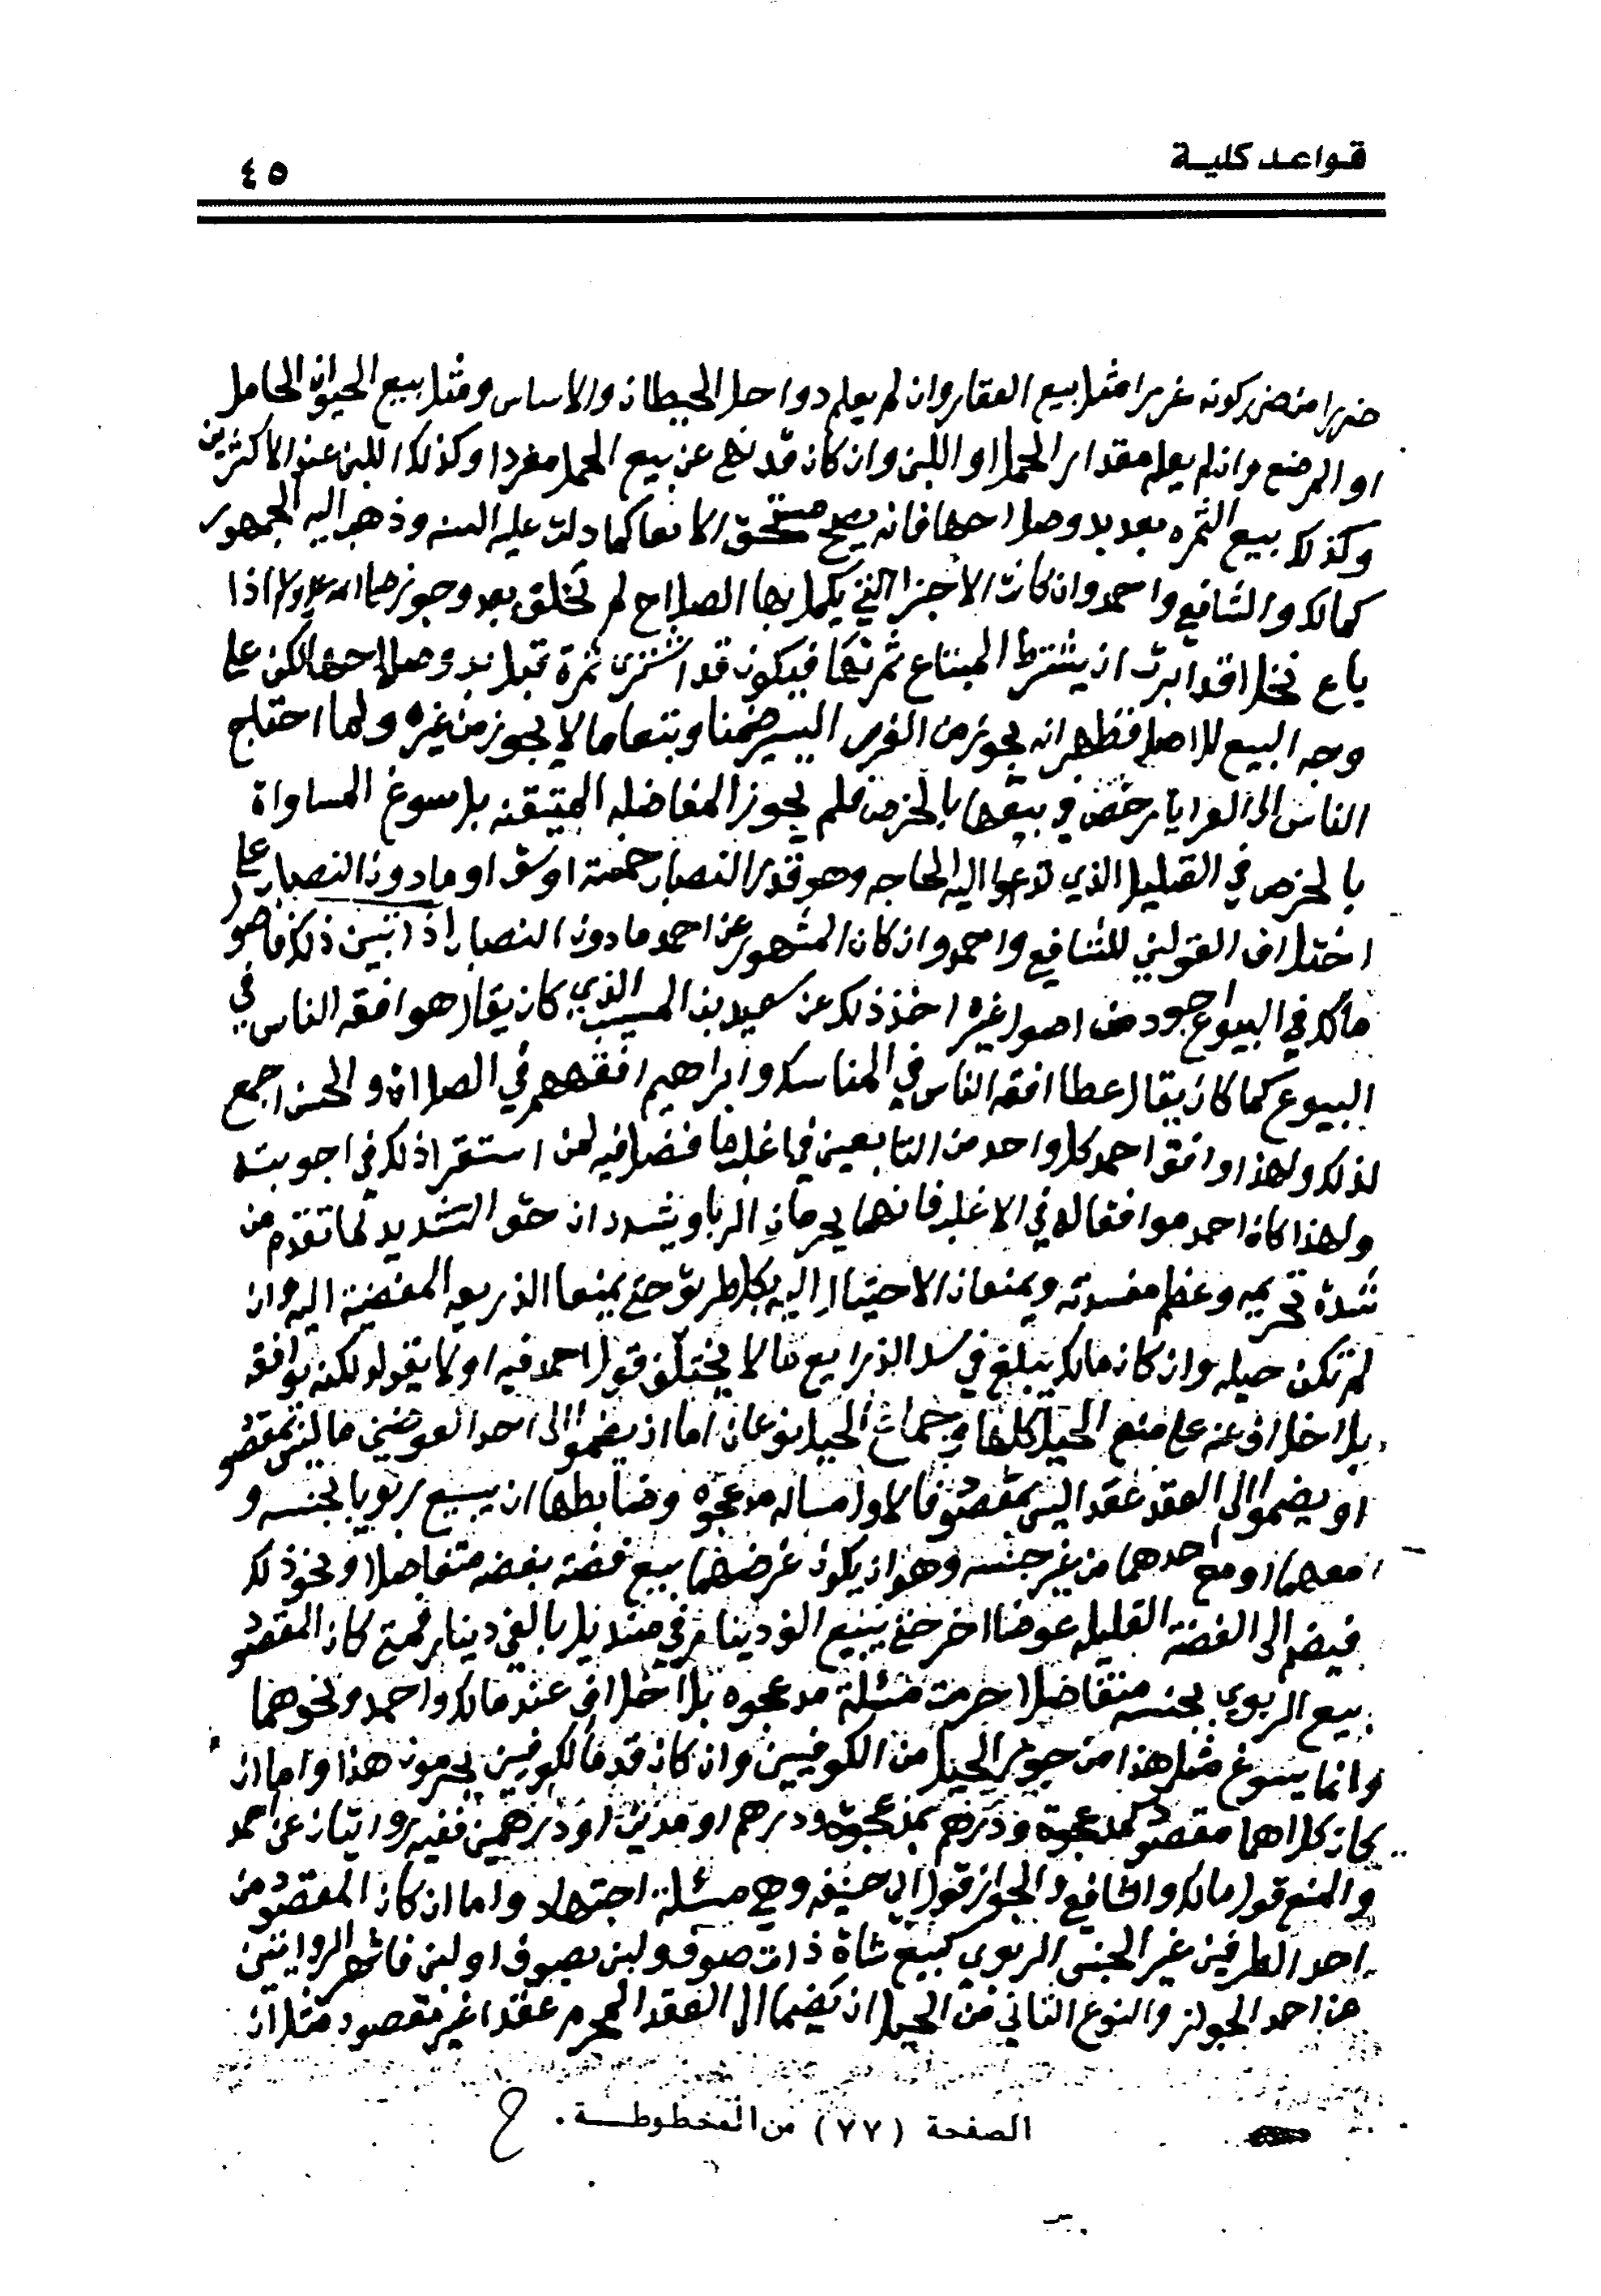 قواعد كلية
٤٥
ضررا من ضرر كونه غررا مثل بيع العقار وان لم يعلم دواخل الحيطان والاساس ومثل بيع الحيوان الحامل
او المرضع وان لم يعلم مقدار الحمل او اللبن وان كان قد نهى عن بيع الحمل مفردا وكذلك اللبن عند الاكثرين
وكذلك بيع الثمره بعد بدو صلاحها فانه يصح مستحق الابقا كما دلت عليه السنه وذهب اليه الجمهور
كمالك والشافعي واحمد وان كانت الاجزا التي يكمل بها الصلاح لم تخلق بعد وجوز صلى الله عليه وسلم اذا
باع نخلا قد ابرت ان يشترط المبتاع ثمرتها فيكون قد اشترى ثمرة قبل بدو صلاحها لكن على
وجه البيع للاصل فظهر انه يجوز من الغرر اليسير ضمنا وتبعا ما لا يجوز من غيره ولما احتاج
الناس الى العرايا رخص في بيعها بالخرص فلم يجوز المفاضله المتيقنه بل سوغ المساواة
بالخرص في القليل الذي تدعوا اليه الحاجه وهو قدر النصاب خمسة اوسق او ما دون النصاب على
اختلاف القولين للشافعي واحمد وان كان المشهور عن احمد ما دون النصاب اذا تبين ذلك فاصول
مالك في البيوع اجود من اصول غيره اخذ ذلك عن سعيد بن المسيب الذي كان يقال هو افقه الناس في
البيوع كما كان يقال عطا افقه الناس في المناسك وابراهيم افقههم في الصلاة والحسن اجمع
لذلك ولهذا وافق احمد كل واحد من التابعين في اغلب ما فضل فيه لمن استقرا ذلك في اجوبته
ولهذا كان احمد موافقا له في الاغلب فانهما يحرمان الربا ويشددان حق التشديد لما تقدم من
شدة تحريمه وعظم مفسدته ويمنعان الاحتيال اليه بكل طريق حتى يمنعا الذريعه المفضية اليه وان
لم تكن حيله وان كان مالك يبلغ في سد الذرايع ما لا يختلف قول احمد فيه او لا يقوله لكنه يوافقه
بلا خلاف عنه على منع الحيل كلها وجماع الحيل نوعان اما ان يضموا الى احد العوضين ما ليس بمقصود
او يضموا الى العقد عقدا ليس بمقصود فالاول مساله مد عجوه وضابطها ان يبيع ربويا بجنسه و
معهما او مع احدهما من غير جنسه وهو ان يكون غرضهما بيع فضة بفضه متفاضلا ونحو ذلك
فيضم الى الفضة القليله عوضا اخر حتى يبيع الف دينار في منديل بالفي دينار فمتى كان المقصود
بيع الربوي بجنسه متفاضلا حرمت مسئلة مد عجوه بلا خلاف عند مالك واحمد ونحوهما
وانما يسوغ مثل هذا من جوز الحيل من الكوفيين وان كان قدما الكوفيين يحرمون هذا واما ان
كان كلاهما مقصود كمد عجوة ودرهم بمد عجوة ودرهم او مدين او درهمين ففيه روايتان عن احمد
والمنع قول مالك والشافعي والجواز قول ابي حنيفه وهي مسئلة اجتهاد واما ان كان المقصود من
احد الطرفين غير الجنس الربوي كبيع شاة ذات صوف ولبن بصوف او لبن فاشهر الروايتين
عن احمد الجواز والنوع الثاني من الحيل ان يضما الى العقد المحرم عقدا غير مقصود مثل ان
الصفحة (٧٧) من المخطوطة.